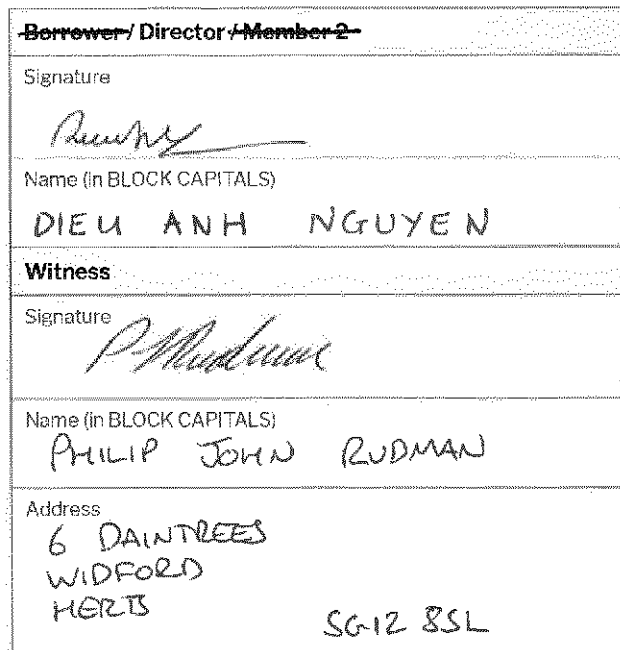 Borrower / Director / Member 2
Signature
Name (in BLOCK CAPITALS)
DIEU ANH NGUYEN
Witness
Signature
Name (in BLOCK CAPITALS)
PHILIP JOHN RUDMAN
Address
6 DAINTREES
WIDFORD
HERTS
SG12 8SL